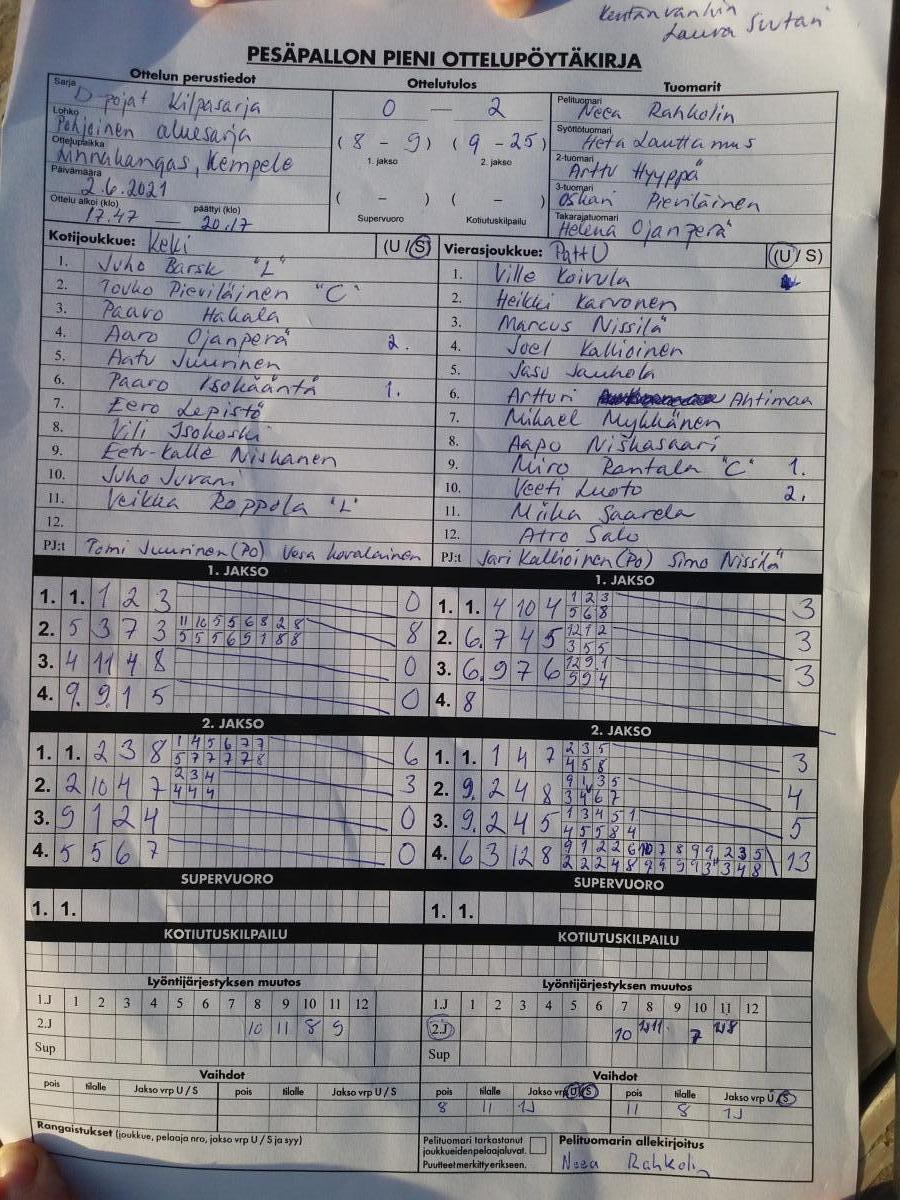 Kentänvanhin
Laura Siutari
PESÄPALLON PIENI OTTELUPÖYTÄKIRJA
Ottelun perustiedot
Sarja D-pojat Kilpasarja
Lohko Pohjoinen aluesarja
Ottelupaikka Linnakangas, Kempele
Päivämäärä 2.6.2021
Ottelu alkoi (klo) päättyi (klo)
17.47 — 20.17
Ottelutulos
0 — 2
(8 - 9) (9 - 25)
1. jakso 2. jakso
( - ) ( - )
Supervuoro Kotiutuskilpailu
Tuomarit
Pelituomari Neea Rahkolin
Syöttötuomari Heta Lauttamus
2-tuomari Arttu Hyyppä
3-tuomari Oskari Pieviläinen
Takarajatuomari Helena Ojanperä
Kotijoukkue: KeKi (U / S)
1. Juho Barsk "L"
2. Touko Pieviläinen "C"
3. Paavo Hakala
4. Aaro Ojanperä 2.
5. Aatu Juurinen
6. Paavo Isokääntä 1.
7. Eero Lepistö
8. Vili Isokoski
9. Eetu-Kalle Niskanen
10. Juho Juvani
11. Veikka Roppola "L"
12.
PJ:t Tomi Juurinen (Po) Vesa Kovalainen
Vierasjoukkue: PattU (U / S)
1. Ville Koivula
2. Heikki Karvonen
3. Marcus Nissilä
4. Joel Kallioinen
5. Jasu Jauhola
6. Artturi Ahtimaa
7. Mikael Mykkänen
8. Aapo Niskasaari
9. Miro Rantala "C" 1.
10. Veeti Luoto 2.
11. Miika Saarela
12. Atro Salo
PJ:t Jari Kallioinen (Po) Simo Nissilä
1. JAKSO
1. 1. 1 2 3 0
2. 5 3 7 3 11 10 5 5 6 8 2 8 8
5 5 5 6 5 1 8 8
3. 4 11 4 8 0
4. 9. 9. 1 5 0
2. JAKSO
1. 1. 2 3 8 1 4 5 6 7 7 6
5 7 7 7 7 8
2. 2 10 4 7 2 3 4 3
4 4 4
3. 9 1 2 4 0
4. 5 5 6 7 0
SUPERVUORO
1. 1.
KOTIUTUSKILPAILU
1. JAKSO
1. 1. 4 10 4 1 2 3 3
5 6 8
2. 6. 7 4 5 12 1 2 3
3 5 5
3. 6. 9 7 6 12 9 1 3
5 9 4
4. 8
2. JAKSO
1. 1. 1 4 7 2 3 5 3
4 5 8
2. 9. 2 4 8 9 1 3 5 4
3 4 6 7
3. 9. 2 4 5 1 3 4 5 1 5
4 5 5 8 4
4. 6 3 12 8 9 1 2 2 6 10 7 8 9 9 2 3 5 13
2 2 2 4 8 9 9 9 9 3 3 4 8
SUPERVUORO
1. 1.
KOTIUTUSKILPAILU
Lyöntijärjestyksen muutos
1.J 1 2 3 4 5 6 7 8 9 10 11 12
2.J 10 11 8 9
Sup
Vaihdot
pois tilalle Jakso vrp U / S pois tilalle Jakso vrp U / S
Rangaistukset (joukkue, pelaaja nro, jakso vrp U / S ja syy)
Lyöntijärjestyksen muutos
1.J 1 2 3 4 5 6 7 8 9 10 11 12
2.J 10 11 7 8
Sup
Vaihdot
pois tilalle Jakso vrp U / S pois tilalle Jakso vrp U / S
8 11 1J 11 8 1J
Pelituomari tarkastanut
joukkueiden pelaajaluvat.
Puutteet merkitty erikseen.
Pelituomarin allekirjoitus
Neea Rahkolin